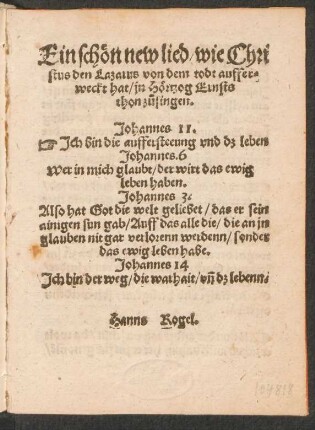 Ein schön new lied/ wie Chri
stus den Lazarus von dem todt auffer-
weckt hat/ in Hörtzog Ernsts
thon zůsingen.
Johannes 11.
☞ Ich bin die aufferstecung vnd dz leben
Johannes.6
Wer in mich glaubt/ der wirt das ewig
leben haben.
Johannes 3.
Also hat Got die welt geliebet/ das er sein
ainigen sun gab/ Auff das alle die/ die an jn
glauben nit gar verlorenn werdenn/ sonder
das ewig leben habe.
Johannes 14
Ich bin der weg/ die warhait/ vñ dz lebenn:
Hanns Kogel.